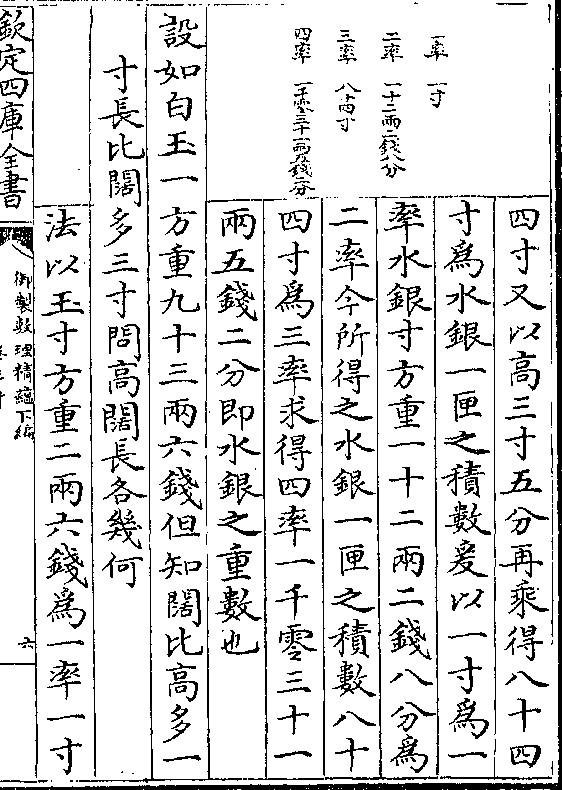 一率 一寸
二率 一十二兩二錢八分
三率 八十四寸
四率 一千零三十一兩五錢二分
四寸又以高三寸五分再乘得八十四
寸為水銀一匣之積數爰以一寸為一
率水銀寸方重一十二兩二錢八分為
二率今所得之水銀一匣之積數八十
四寸為三率求得四率一千零三十一
兩五錢二分即水銀之重數也
設如白玉一方重九十三兩六錢但知闊比高多一
寸長比闊多三寸問高闊長各幾何
法以玉寸方重二兩六錢為一率一寸
欽定四庫全書
御製數理精蘊下編
六